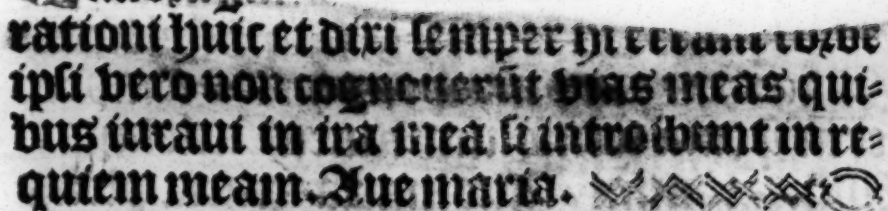 rationi huic et dixi semper hi errant corde
ipsi vero non cognouerūt vias meas qui⸗
bus iuraui in ira mea si introibunt in re⸗
quiem meam. Aue maria.